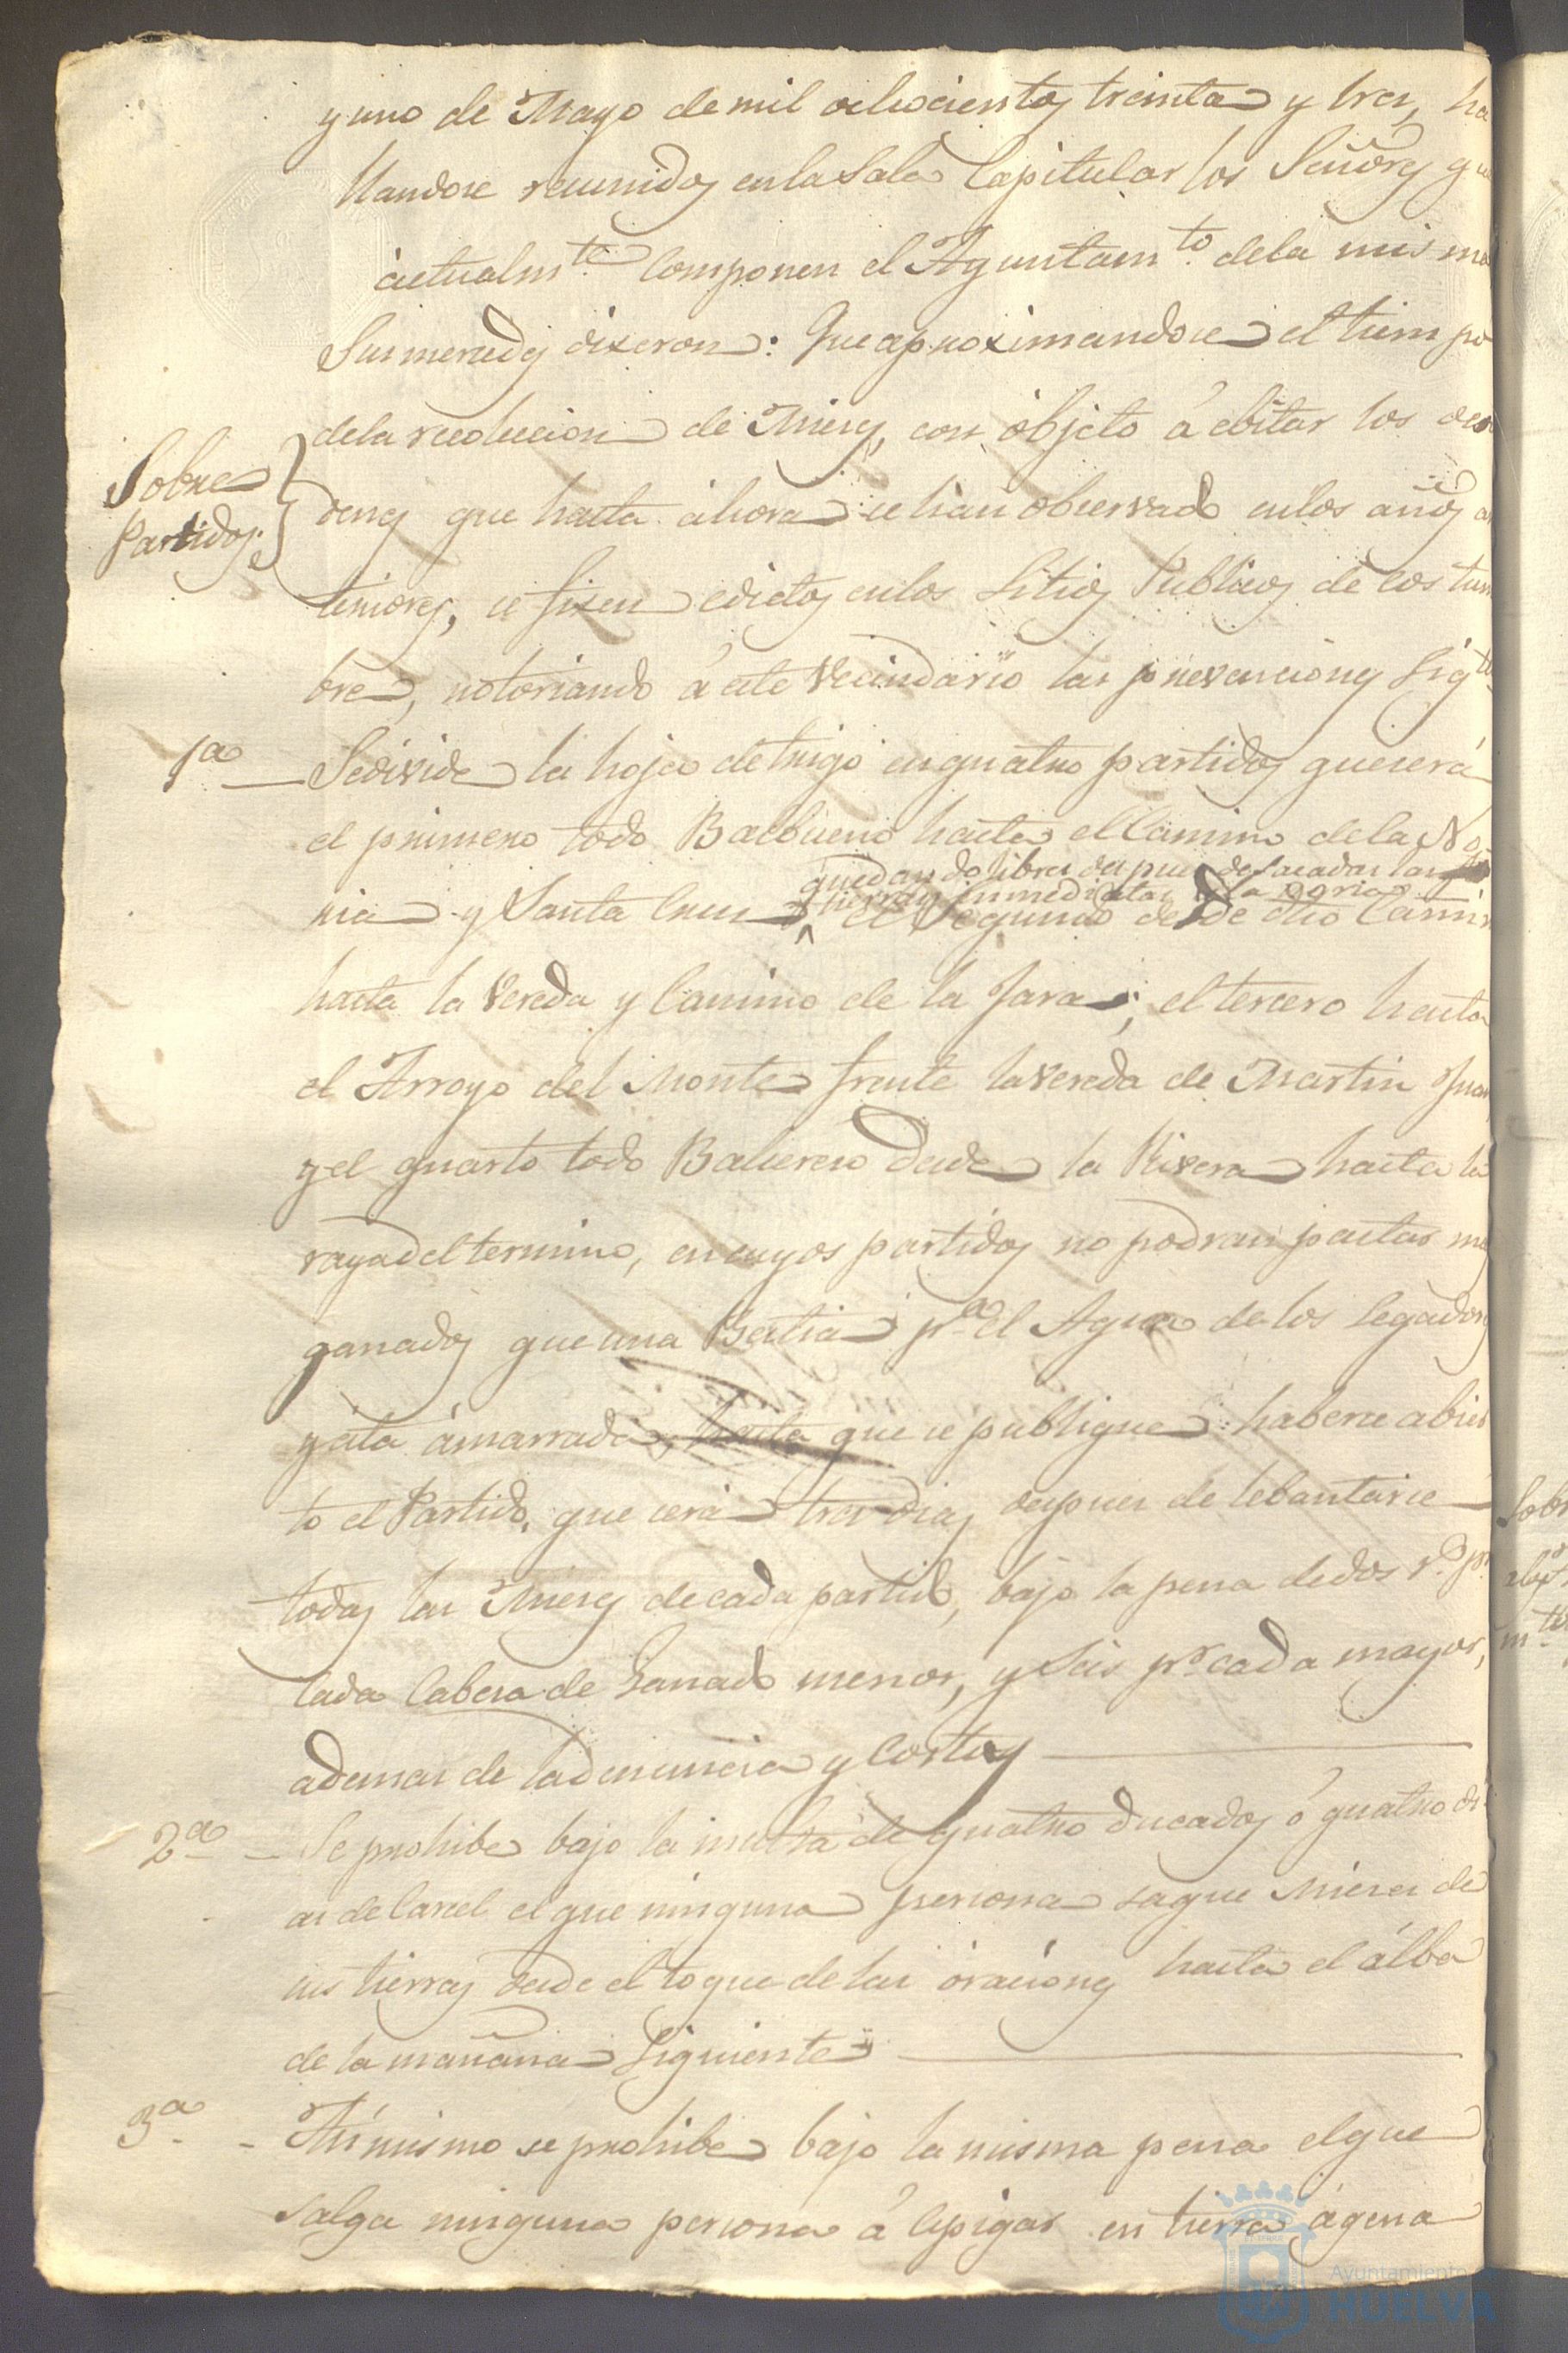 y uno de Mayo de mil ochocientos treinta y tres, ha
llandose reunidos en la Sala Capitular los Señores q
actualmte. componen el Ayuntamto. de la misma
Sus mercedes dixeron: Que aproximandose el tiempo
de la recoleccion de Mieses, con objeto á ebitar los desor
Sobre
Partidos.
denes que hasta ahora se han observado en los años an
teriores, se fixen edictos en los Sitios Publicos de costum
bre, notoriando á este Vecindario las prevenciones Sigtes.
1a Se divide la hoja de trigo en quatro partidos que será
el primero todo Balbueno hasta el Camino de la No
quedando libres despues de sacadas las
tierras inmediatas á la noria
ria y Santa Cruz el Segundo desde dho Camin
hasta la Vereda y Camino de la Jara; el tercero hasta
el Arroyo del Monte frente la vereda de Martin Juan
y el quarto todo desde la Rivera hasta la
raya del termino, en cuyos partidos no podran pastar mas
ganados que una Bestia pa. el Agua de los Segadores
y esta amarrada, hasta que se publique haberse abier
to el Partido, que será tres dias despues de lebantarse
todas las Mieses de cada partido, bajo la pena de dos rs. pr.
cada Cabesa de Ganado menor, y seis pr. cada mayor,
ademas de la denuncia y Costas
2a Se prohibe bajo la multa de quatro Ducados ó quatro di
as de Carcel el que ninguna persona saque Mieses de
sus tierras desde el toque de las oraciones hasta el alba
de la mañana Siguiente
3a. Asímismo se prohibe bajo la misma pena el que
salga ninguna persona á Espigar en tierra agena
Ayuntamiento
HUELVA